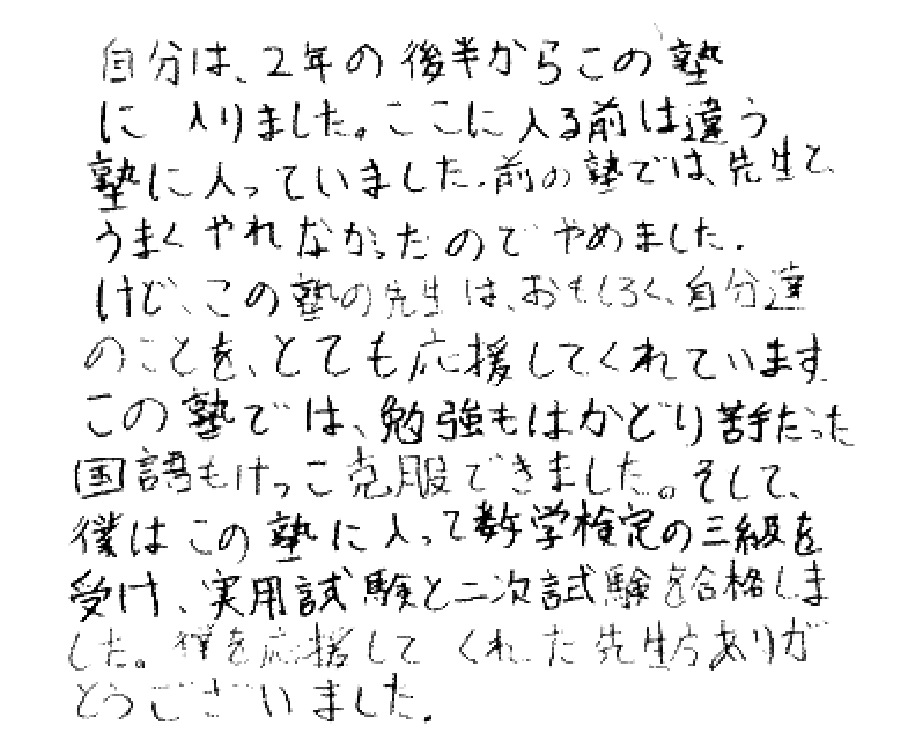 自分は、2年の後半からこの塾
に入りました。ここに入る前は違う
塾に入っていました。前の塾では、先生と、
うまくやれなかったのでやめました。
けど、この塾の先生は、おもしろく、自分達
のことを、とても応援してくれています。
この塾では、勉強もはかどり苦手だった
国語もけっこ克服できました。そして、
僕はこの塾に入って数学検定の三級を
受け、実用試験と二次試験を合格しま
した。僕を応援してくれた先生方ありが
とうございました。